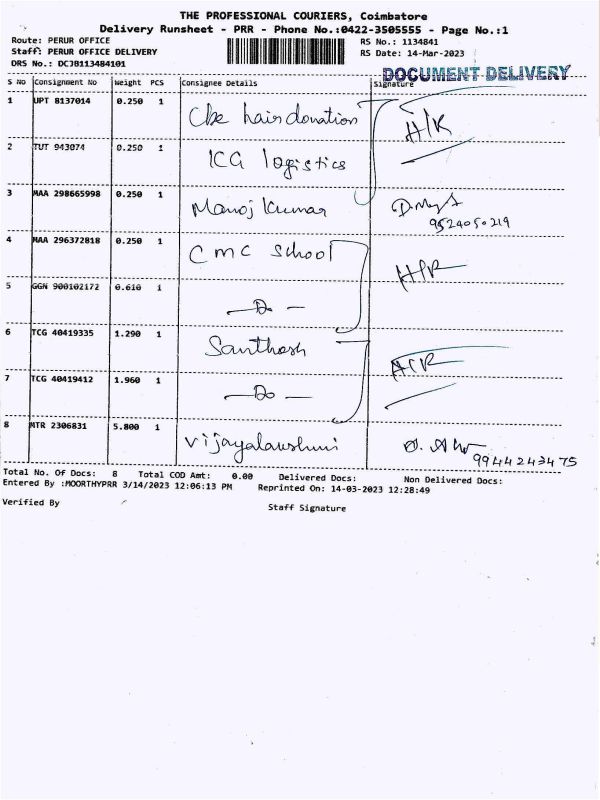 THE PROFESSIONAL COURIERS, Coimbatore
Delivery Runsheet - PRR - Phone No.:0422-3505555 - Page No.:1
Route: PERUR OFFICE RS No.: 1134841
Staff: PERUR OFFICE DELIVERY RS Date: 14-Mar-2023
DRS No.: DCJB113484101
DOCUMENT DELIVERY
S No Consignment No Weight PCS Consignee Details Signature
1 UPT 8137014 0.250 1 Cbe hair donation H/R
2 TUT 943074 0.250 1 ICG logistics
3 MAA 298665998 0.250 1 Manoj Kumar
9524050219
4 MAA 296372818 0.250 1 CMC School H/R
5 GGN 900102172 0.610 1 — Do —
6 TCG 40419335 1.290 1 Santhosh H/R
7 TCG 40419412 1.960 1 — Do —
8 MTR 2306831 5.800 1 Vijayalakshmi
9944243475
Total No. Of Docs: 8 Total COD Amt: 0.00 Delivered Docs: Non Delivered Docs:
Entered By :MOORTHYPRR 3/14/2023 12:06:13 PM Reprinted On: 14-03-2023 12:28:49
Verified By Staff Signature